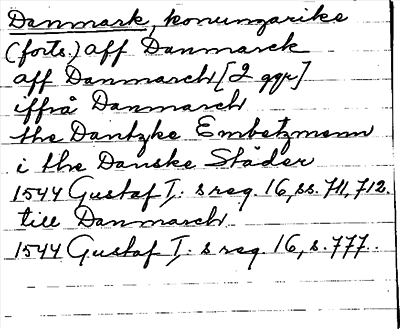 Danmark, konungarike
(forts.) aff Danmarck
aff Danmarch [2 ggr]
iffrå Danmarch
the Dantzke Embetzmenn
i the Danske Städer
1544 Gustaf I: s reg. 16, ss. 711, 712.
till Danmarch
1544 Gustaf I: s reg. 16, s. 777.